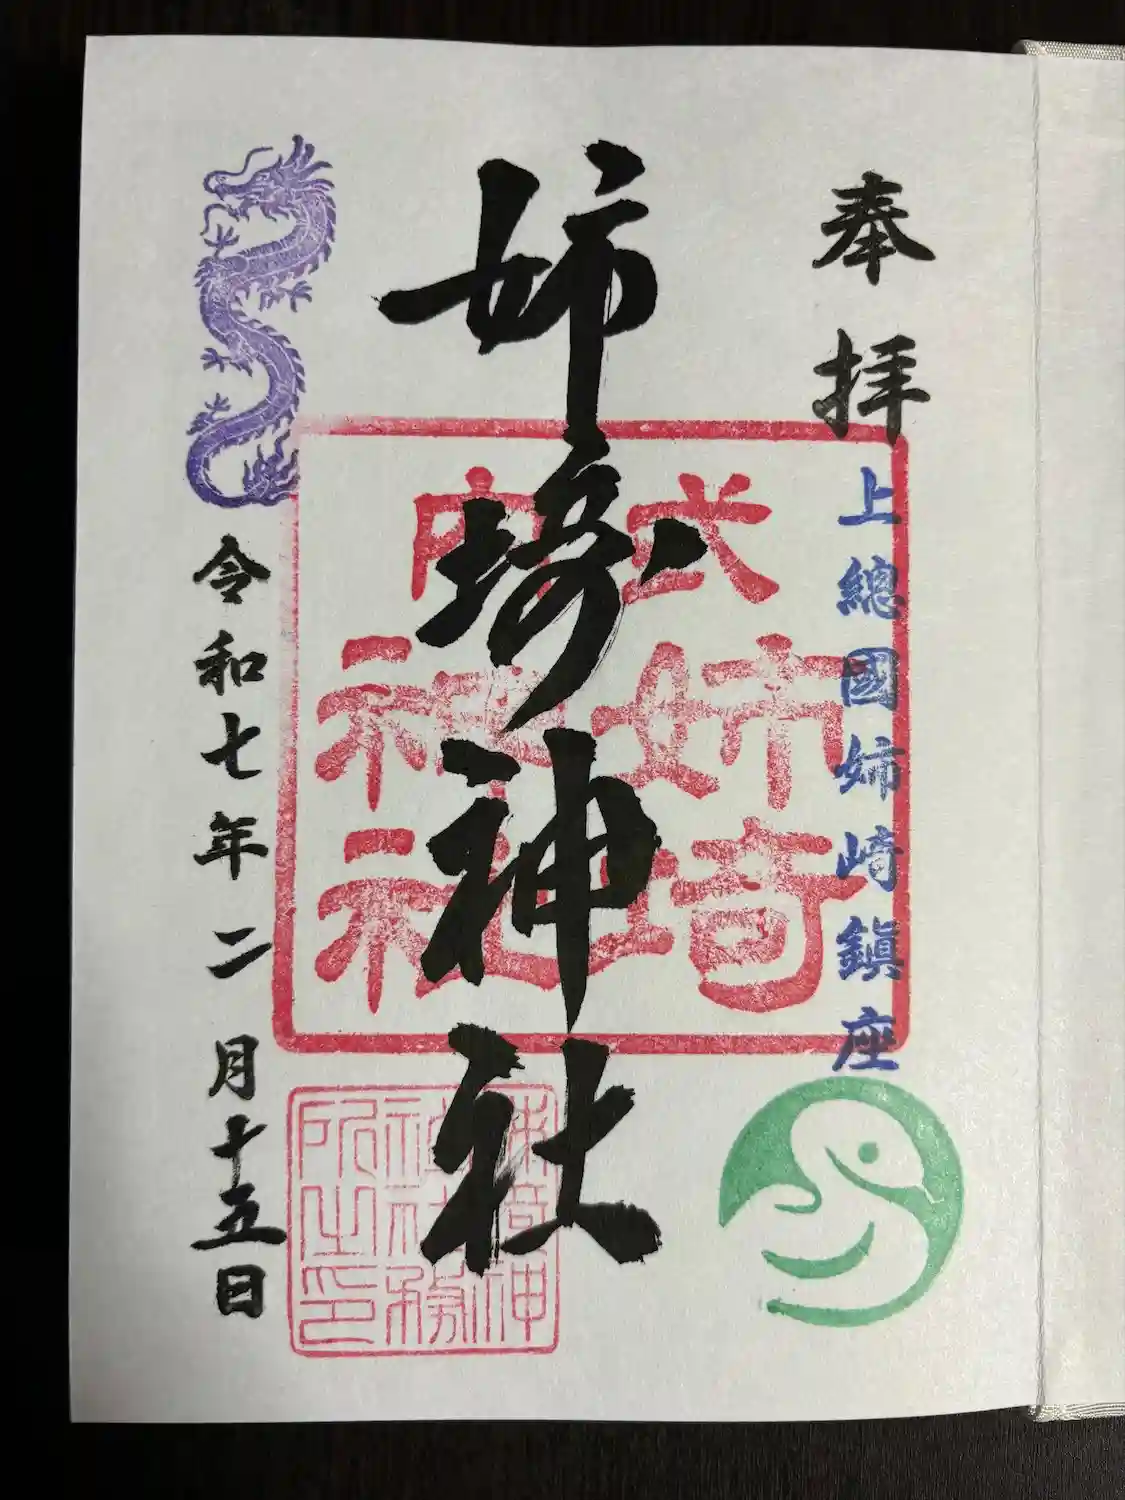 奉拝
上總國姉崎鎮座
姉埼神社
式内
姉埼
神社
姉埼神
社社務
所之印
令和七年二月十五日